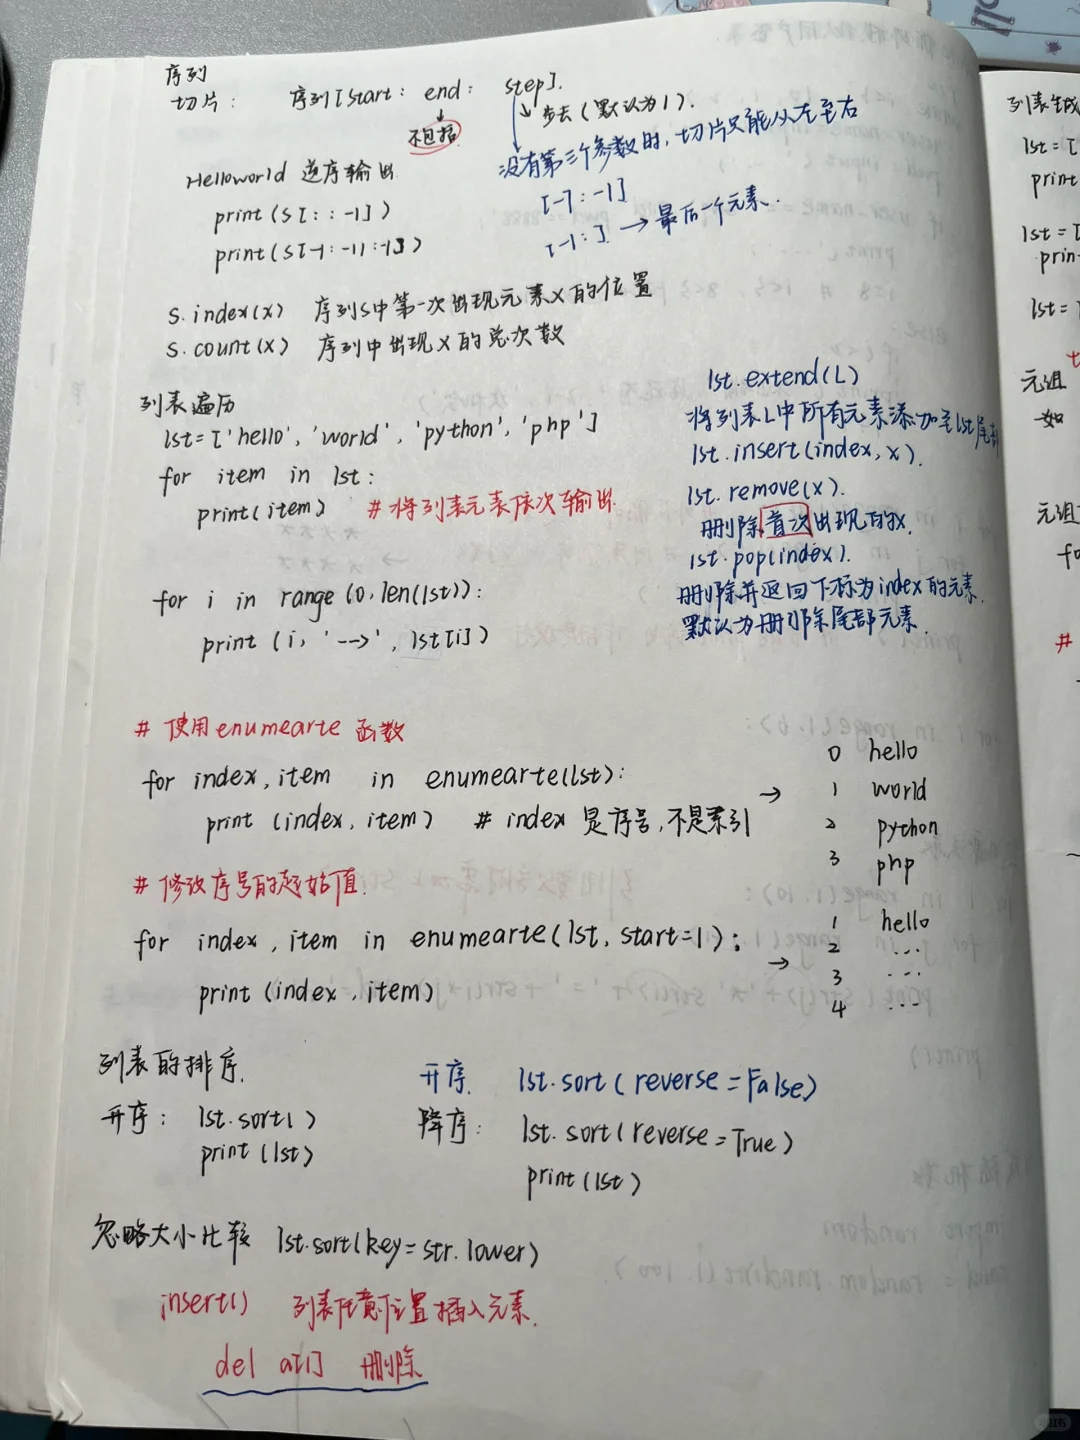 序列
切片： 序列[start： end： step].
不包括
步长（默认为1).
没有第三个参数时，切片只能从左至右
[-1：-1]
[-1：] → 最后一个元素.
Helloworld 逆序输出
print(s[：：-1])
print(s[-1：-11：-1])
s.index(x) 序列s中第一次出现元素x的位置
s.count(x) 序列中出现x的总次数
列表遍历
lst=['hello', 'world', 'python', 'php']
for item in lst:
print(item) #将列表元素依次输出
for i in range(0,len(lst)):
print(i, '-->', lst[i])
lst.extend(L)
将列表L中所有元素添加至lst尾部
lst.insert(index,x).
lst.remove(x).
删除首次出现的x.
lst.pop(index).
删除并返回下标为index的元素.
默认为删除尾部元素.
# 使用enumearte 函数
for index,item in enumearte(lst):
print (index, item) # index 是序号,不是索引
→
0 hello
1 world
2 python
3 php
# 修改序号的起始值.
for index,item in enumearte(lst, start=1):
print(index,item)
→
1 hello
2 ...
3 ...
4 ...
列表的排序.
升序： lst.sort()
print(lst)
升序. lst.sort(reverse=False)
降序： lst.sort(reverse=True)
print(lst)
忽略大小比较 lst.sort(key=str.lower)
insert() 列表任意位置插入元素.
del a[] 删除
列表生成
lst=[
print
lst=[
prin
lst=
元组
如
元组
fo
#